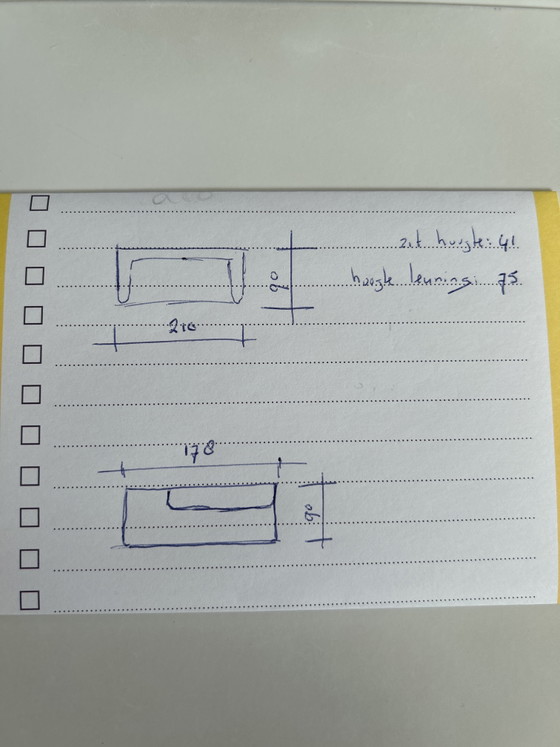 zit hoogte: 41
hoogte leuning: 75
90
210
178
90